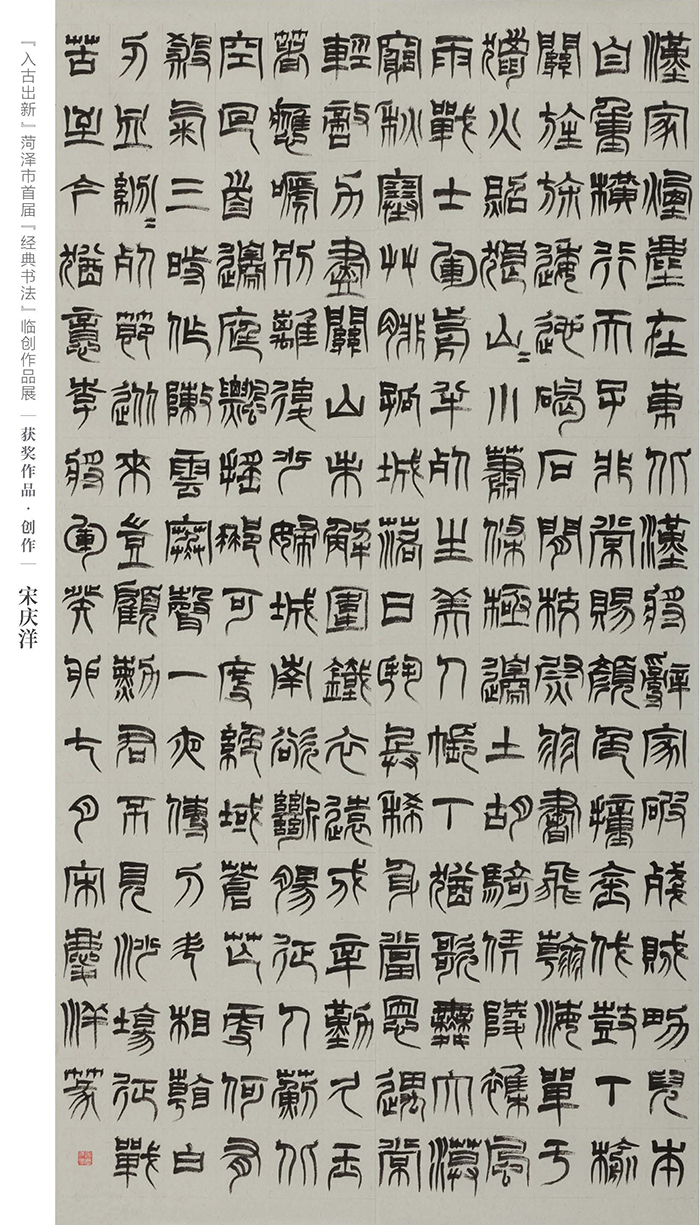 漢家煙塵在東北漢將辭家破殘賊男兒本
自重橫行天子非常賜顏色摐金伐鼓下榆
關旌旆逶迤碣石間校尉羽書飛瀚海單于
獵火照狼山〻川蕭條極邊土胡騎憑陵雜風
雨戰士軍前半死生美人帳下猶歌舞大漠
窮秋塞草腓孤城落日鬥兵稀身當恩遇常
輕敵力盡關山未解圍鐵衣遠戍辛勤久玉
箸應啼別離後少婦城南欲斷腸征人薊北
空回首邊庭飄搖那可度絕域蒼茫更何有
殺氣三時作陣雲寒聲一夜傳刁斗相看白
刃血紛〻死節從來豈顧勳君不見沙場征戰
苦至今猶憶李將軍癸卯七月宋慶洋篆
『入古出新』菏泽市首届『经典书法』临创作品展｜获奖作品·创作｜宋庆洋